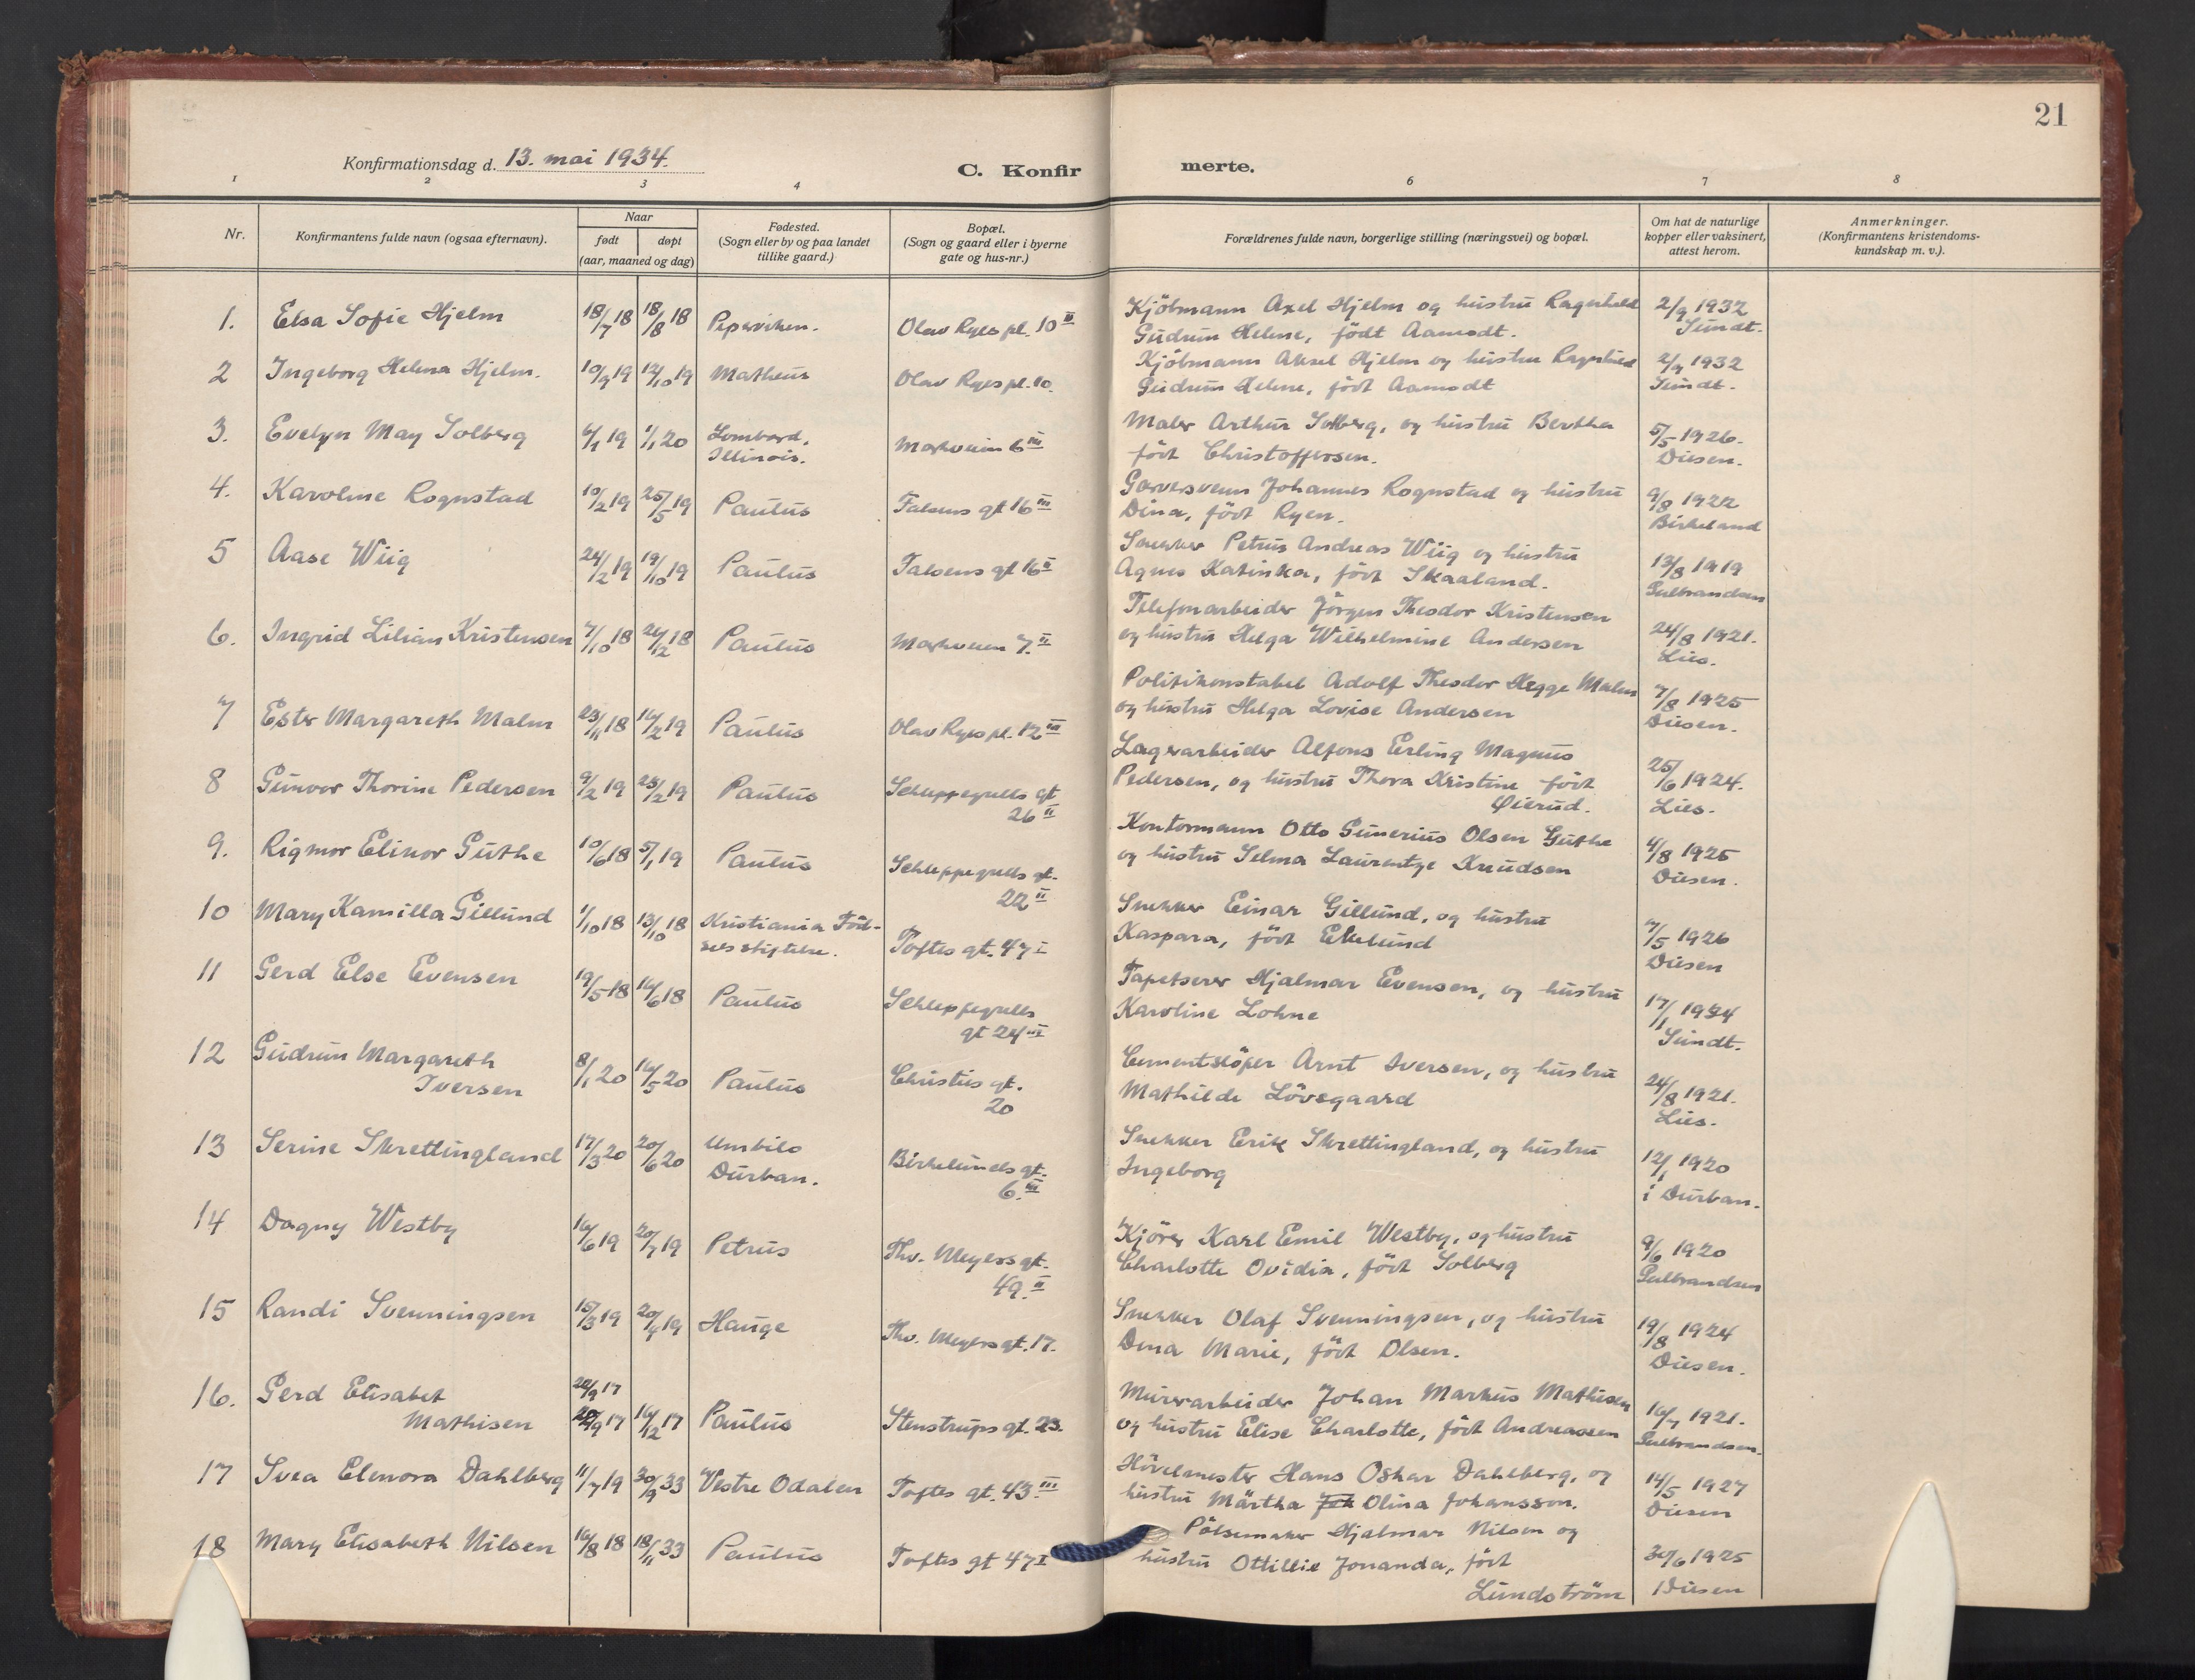 21
Konfirmationsdag d. 13. mai 1934.
C. Konfir
merte.
1 2 3 4 6 7 8
Nr.
Konfirmantens fulde navn (ogsaa efternavn).
Naar
født døpt
(aar, maaned og dag)
Fødested.
(Sogn eller by og paa landet
tillike gaard.)
Bopæl.
(Sogn og gaard eller i byerne
gate og hus-nr.)
Forældrenes fulde navn, borgerlige stilling (næringsvei) og bopæl.
Om hat de naturlige
kopper eller vaksinert,
attest herom.
Anmerkninger.
(Konfirmantens kristendoms-
kundskap m. v.).
1. Elsa Sofie Hjelm 18/7 18 18/8 18 Piperviken. Olav Ryes pl. 10 II Kjöbmann Axel Hjelm og hustru Ragnhild 2/9 1932
Gudrun Helene, födt Aamodt. Sundt.
2 Ingeborg Helena Hjelm. 10/9 19 12/10 19 Matheus Olav Ryes pl. 10. Kjöbmann Aksel Hjelm og hustru Ragnhild 2/9 1932
Gudrun Helene, födt Aamodt Sundt.
3. Evelyn May Solberg 6/1 19 1/1 20 Lombard, Markveien 6 III Maler Arthur Solberg, og hustru Bertha 5/5 1926.
Illinois. födt Christoffersen. Duesen.
4. Karoline Rognstad 10/2 19 25/5 19 Paulus Falsens gt 16 III Garversvenn Johannes Rognstad og hustru 9/8 1922
Dina, födt Ryen. Birkeland
5 Aase Wiig 24/2 19 19/10 19 Paulus Falsens gt 16 II Snekker Petrus Andreas Wiig og hustru 13/8 1919
Agnes Katinka, födt Skaaland. Gulbrandsen
6. Ingrid Lilian Kristensen 7/10 18 26/12 18 Paulus Markveien 7. II Telefonarbeider Jörgen Theodor Kristensen 24/8 1921.
og hustru Helga Wilhelmine Andersen Lies.
7 Ester Margareth Malm 23/11 18 16/2 19 Paulus Olav Ryes pl. 12 III Politikonstabel Adolf Theodor Hegge Malm 7/8 1925
og hustru Helga Lovise Andersen Duesen.
8 Gunvor Thorine Pedersen 9/2 19 23/2 19 Paulus Schleppegrells gt Lagerarbeider Alfons Erling Magnus 25/6 1924.
26 II Pedersen, og hustru Thora Kristine födt Lies.
Øierud.
9. Rigmor Elinor Guthe 10/6 18 5/1 19 Paulus Schleppegrells gt. Kontormann Otto Gunerius Olsen Guthe 4/8 1925
22 II og hustru Selma Laurentze Knudsen Duesen.
10 Mary Kamilla Gillund 1/10 18 13/10 18 Kristiania Föd- Toftes gt. 47 I Snekker Einar Gillund, og hustru 7/5 1926
selsstiftelse. Kaspara, födt Ekelund Duesen
11 Gerd Else Evensen 19/5 18 16/6 18 Paulus Schleppegrells Tapetserer Hjalmar Evensen, og hustru 17/1 1934
gt 24 III Karoline Lohne Sundt.
12 Gudrun Margareth 8/1 20 16/5 20 Paulus Christies gt. Cementstöper Arnt Iversen, og hustru 24/8 1921.
Iversen 20 Mathilde Lövsgaard Lies.
13 Serine Skrettingland 17/3 20 20/6 20 Umbilo Birkelunds gt. Snekker Erik Skrettingland, og hustru 12/1 1920
Durban. 6. III Ingeborg i Durban.
14 Dagny Westby 16/6 19 20/7 19 Petrus Thv. Meyers gt. Kjörer Karl Emil Westby, og hustru 9/6 1920
49. II Charlotte Ovidia, födt Solberg Gulbrandsen
15 Randi Svenningsen 15/3 19 20/4 19 Hauge Thv. Meyers gt. 17. Snekker Olaf Svenningsen, og hustru 19/8 1924
Dina Marie, födt Olsen. Duesen.
16. Gerd Elisabet 20/9 17 Murerarbeider Johan Markus Mathisen 16/7 1921.
Mathisen 17 16/12 17 Paulus Stenstrups gt. 23. og hustru Elise Charlotte, födt Andreassen Gulbrandsen.
17 Svea Elenora Dahlberg 11/7 19 30/9 33 Vestre Odalen Toftes gt. 43. III Hövelmester Hans Oskar Dahlberg, og 14/5 1927
hustru Märtha Olina Johansson. Duesen
18 Mary Elisabeth Nilsen 16/8 18 18/11 33 Paulus Toftes gt 47 I Pölsemaker Hjalmar Nilsen og 30/6 1925
hustru Ottillie Jonanda, födt Duesen
Lundström